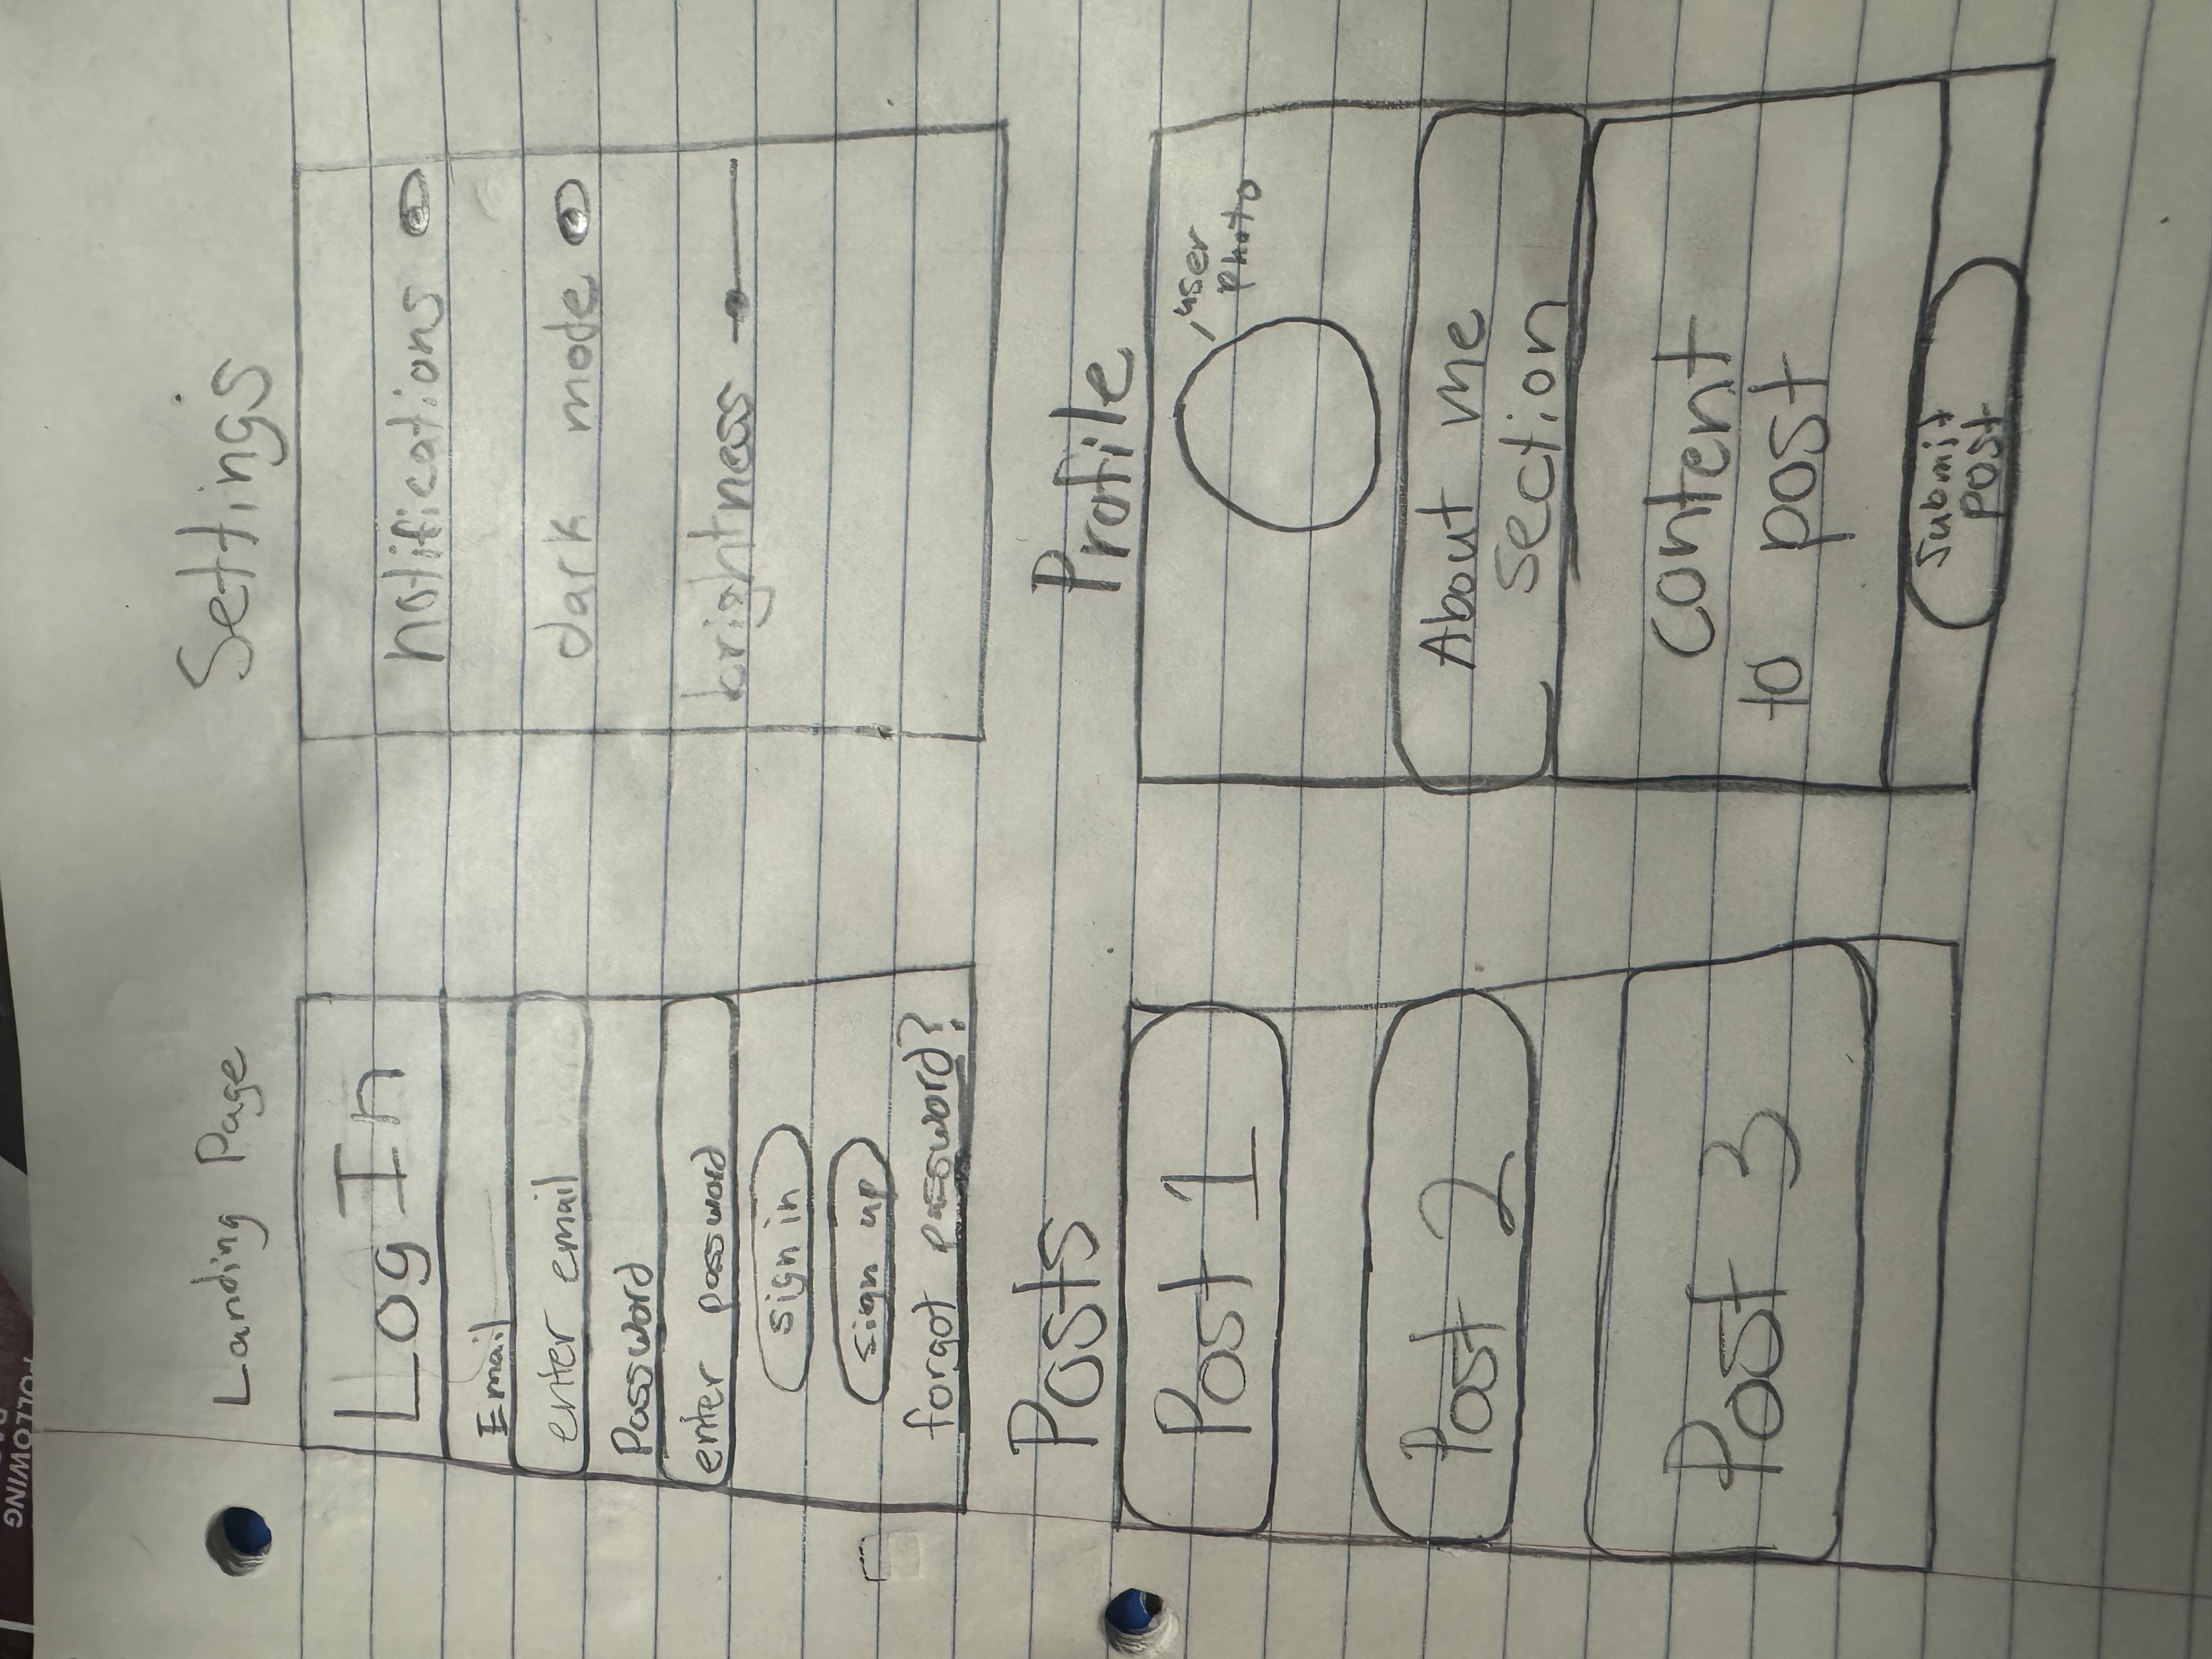 FOLLOWING
Landing Page
Log In
Email
enter email
Password
enter password
sign in
sign up
forgot password?
Settings
notifications
dark mode
brightness
Posts
Post 1
Post 2
Post 3
Profile
user
photo
About me
section
content
to post
Submit
post